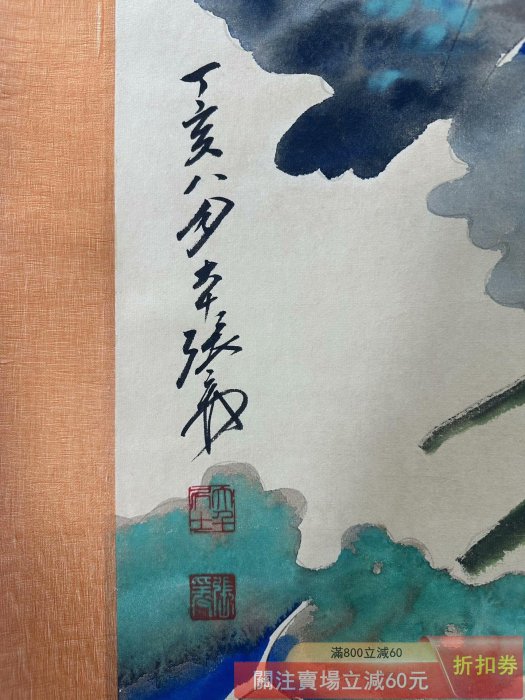 丁亥八月大千張爰
大千居士
張爰
滿800立減60
關注賣場立減60元
折扣券